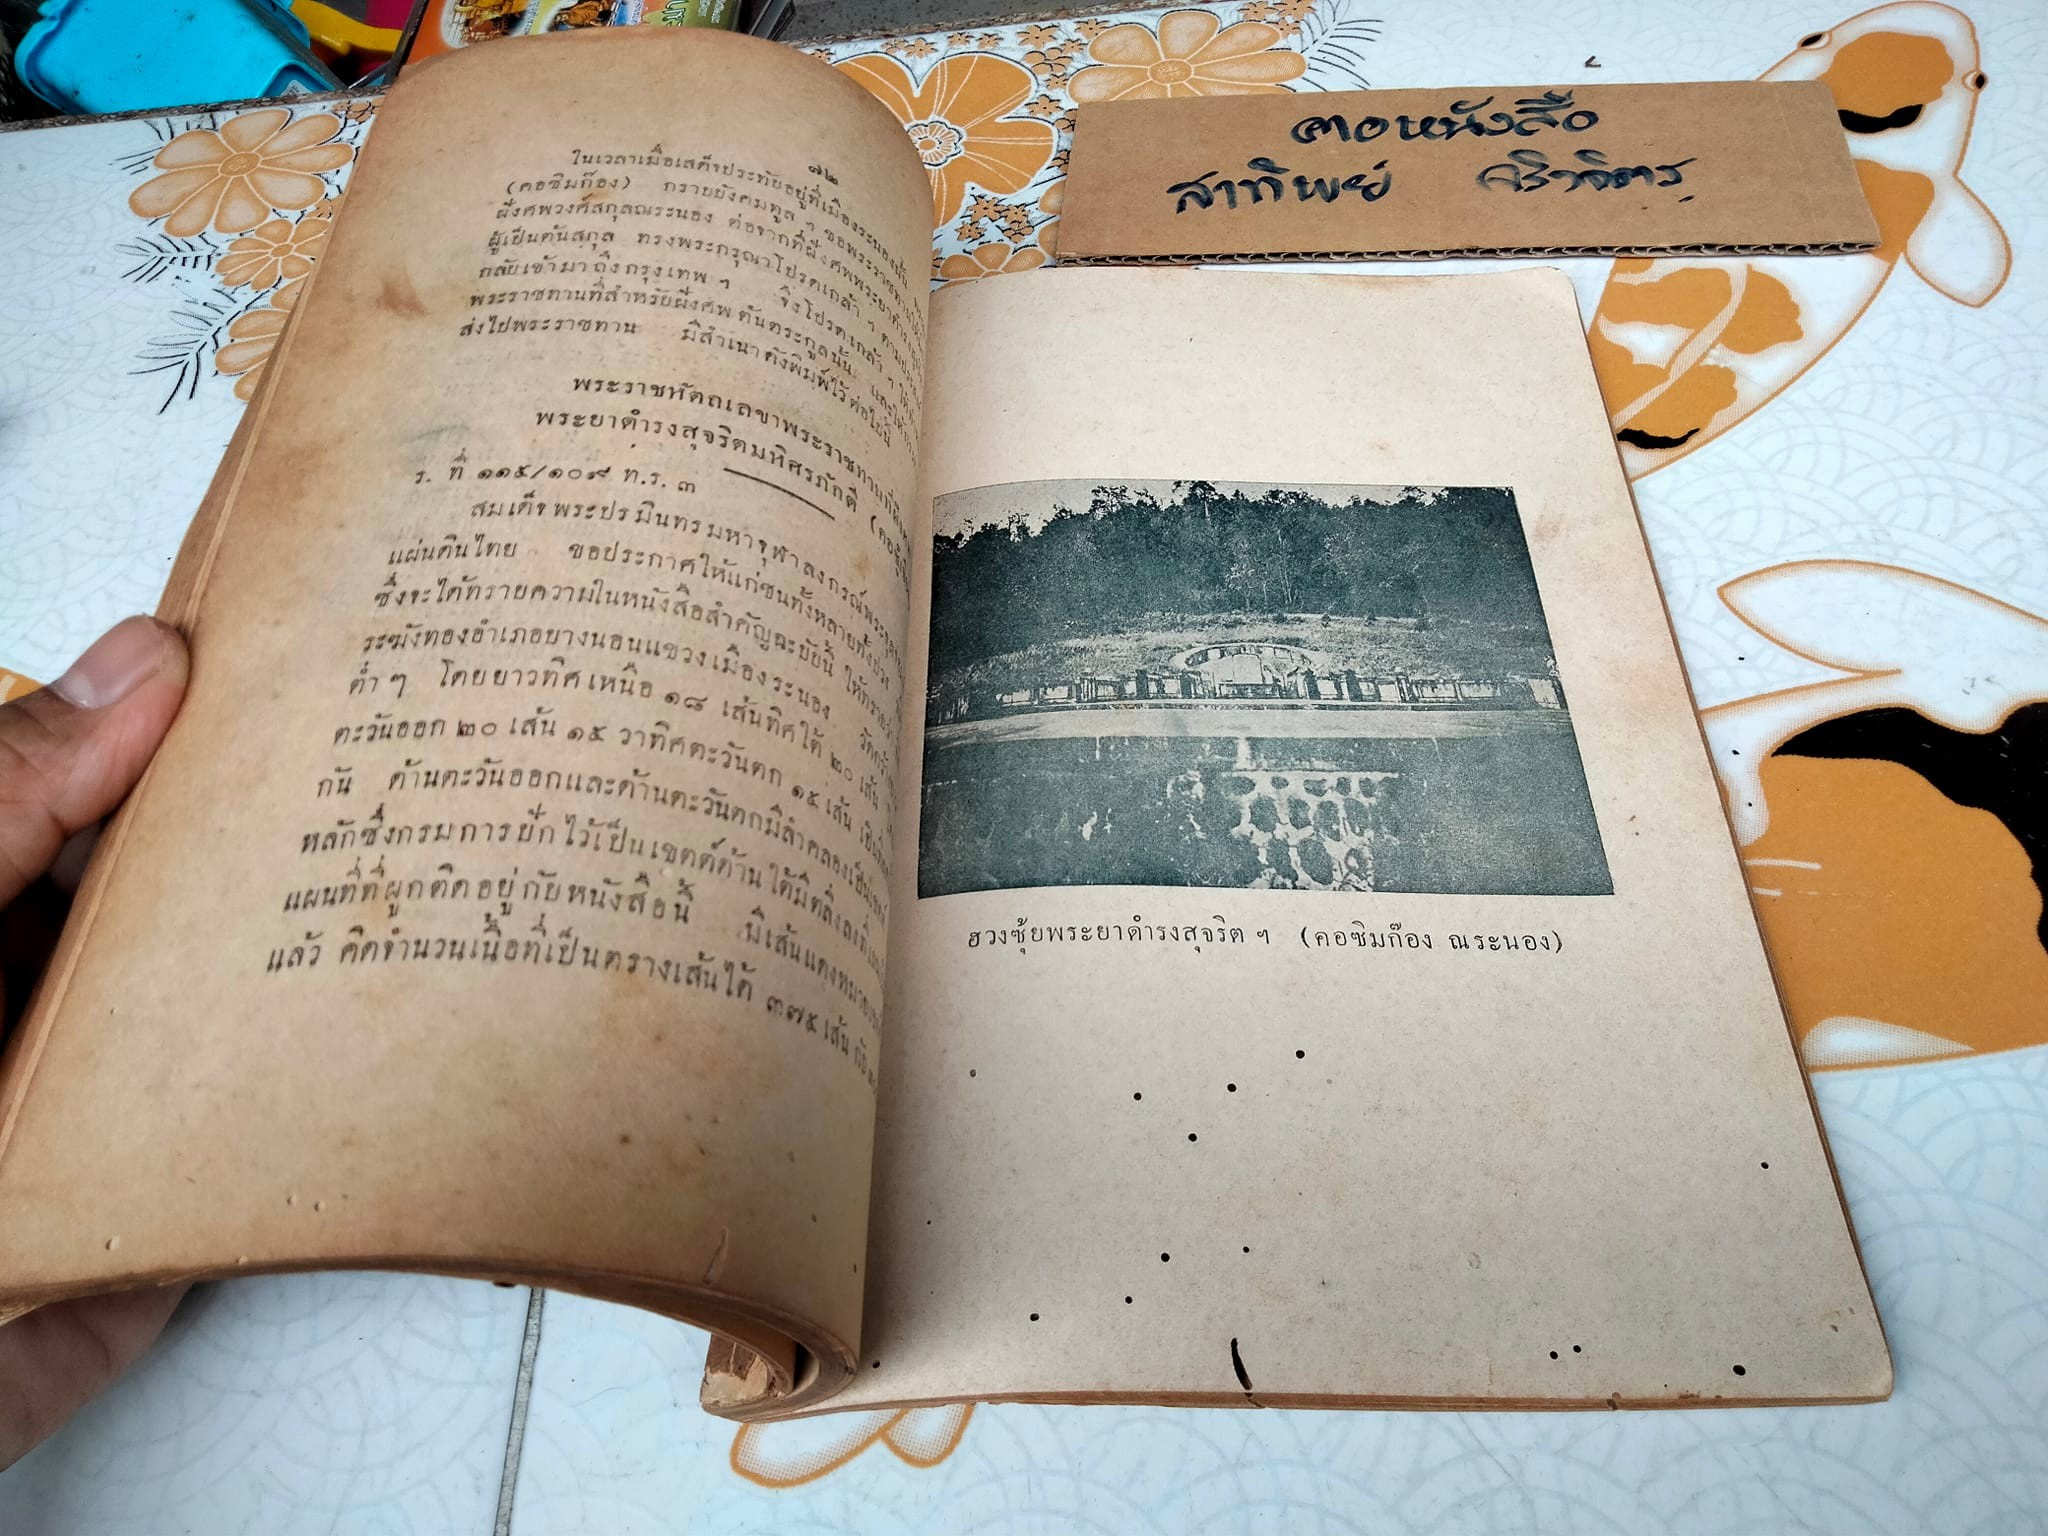 คอหนังสือ
สาทิพย์ จิราจิตร
๗๒
ในเวลาเมื่อเสด็จประทับอยู่ที่เมืองระนองนั้น
(คอซิมก๊อง) กราบบังคมทูล ฯ ขอพระราชทาน
ฝังศพวงศ์สกุลณระนอง ต่อจากที่ฝังศพพระยาดำรง
ผู้เป็นต้นสกุล ทรงพระกรุณาโปรดเกล้า ฯ ตาม
กลับเข้ามาถึงกรุงเทพ ฯ จึงโปรดเกล้า ฯ ให้
พระราชทานที่สำหรับฝังศพต้นตระกูลนั้น และให้
ส่งไปพระราชทาน มีสำเนาดังพิมพ์ไว้ต่อไปนี้
พระราชหัตถเลขาพระราชทานที่ฝังศพ
พระยาดำรงสุจริตมหิศรภักดี
ร. ที่ ๑๑๕/๑๐๙ ท.ร. ๓
สมเด็จพระปรมินทรมหาจุฬาลงกรณ์พระจุลจอม
แผ่นดินไทย ขอประกาศให้แก่ชนทั้งหลายทั้งปวง
ซึ่งจะได้ทราบความในหนังสือสำคัญฉะบับนี้ ให้ทราบว่า
ระฆังทองอำเภอบางนอนแขวงเมืองระนอง วัดกว้าง
ต่ำ ๆ โดยยาวทิศเหนือ ๑๘ เส้นทิศใต้ ๒๐ เส้น
ตะวันออก ๒๐ เส้น ๑๕ วาทิศตะวันตก ๑๕ เส้น
กัน ด้านตะวันออกและด้านตะวันตกมีลำคลองเป็นเขตต์
หลักซึ่งกรมการปักไว้เป็นเขตต์ด้านใต้มีตลิ่ง
แผนที่ที่ผูกติดอยู่กับหนังสือนี้ มีเส้นแดงหมาย
แล้ว คิดจำนวนเนื้อที่เป็นตรางเส้นได้ ๓๗๕ เส้น กับ
ฮวงซุ้ยพระยาดำรงสุจริต ฯ (คอซิมก๊อง ณระนอง)